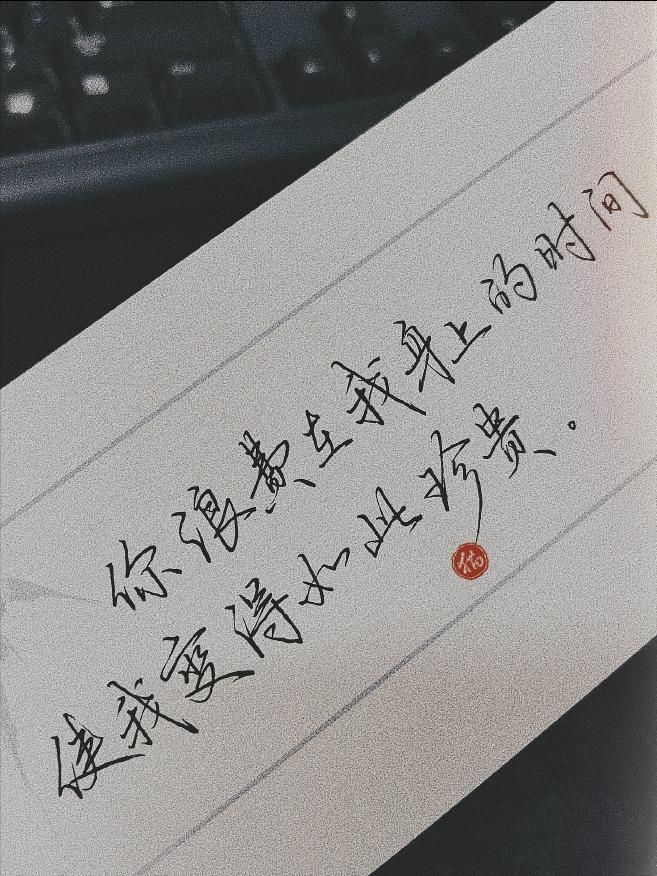 你浪费在我身上的时间
使我变得如此珍贵。